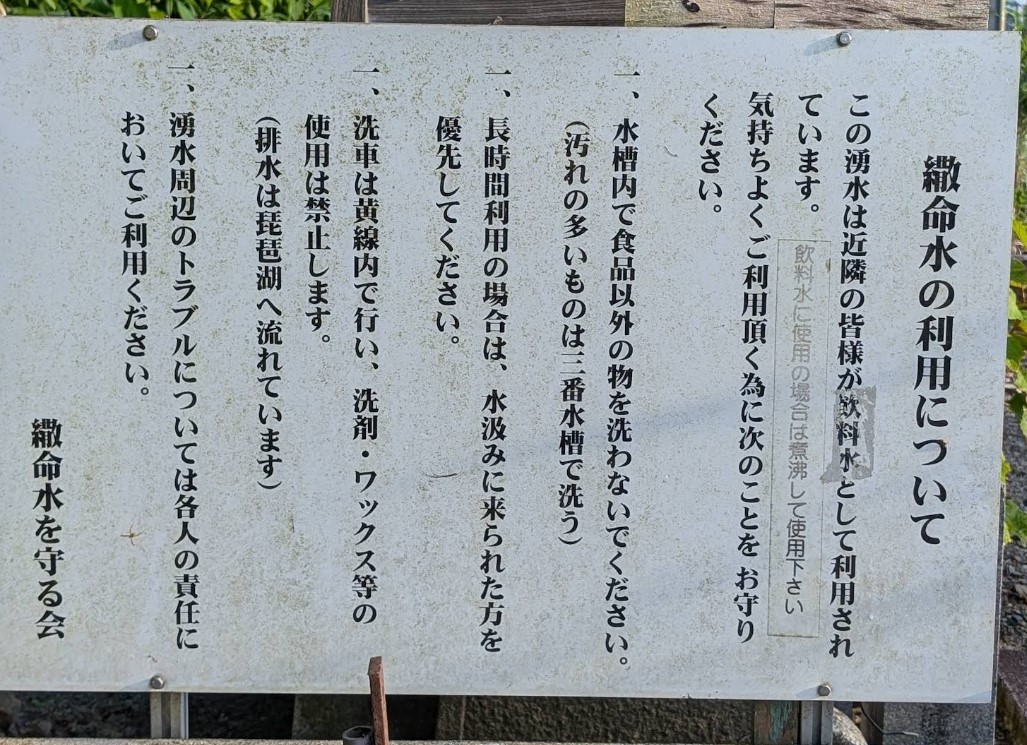 繖命水の利用について
この湧水は近隣の皆様が飲料水として利用され
ています。
飲料水に使用の場合は煮沸して使用下さい
気持ちよくご利用頂く為に次のことを お守り
ください。
一、水槽内で食品以外の物を洗わないでください。
(汚れの多いものは三番水槽で洗う)
一、長時間利用の場合は、水汲みに来られた方を
優先してください。
一、洗車は黄線内で行い、洗剤・ワックス等の
使用は禁止します。
(排水は琵琶湖へ流れています)
一、湧水周辺のトラブルについては各人の責任に
おいてご利用ください。
繖命水を守る会